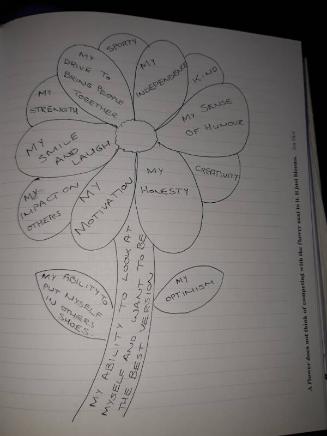 SPORTY
MY
DRIVE TO
BRING PEOPLE
TOGETHER
MY
INDEPENDENCE
KIND
MY
STRENGTH
MY SENSE
OF HUMOUR
MY
SMILE
AND LAUGH
CREATIVITY
MY
IMPACT ON
OTHERS
MY
MOTIVATION
MY
HONESTY
MY ABILITY TO
PUT MYSELF
IN OTHERS
SHOES
MY
OPTIMISM
MY ABILITY TO LOOK AT
MYSELF AND WANT TO BE
THE BEST VERSION
A flower does not think of competing with the flower next to it. It just blooms.